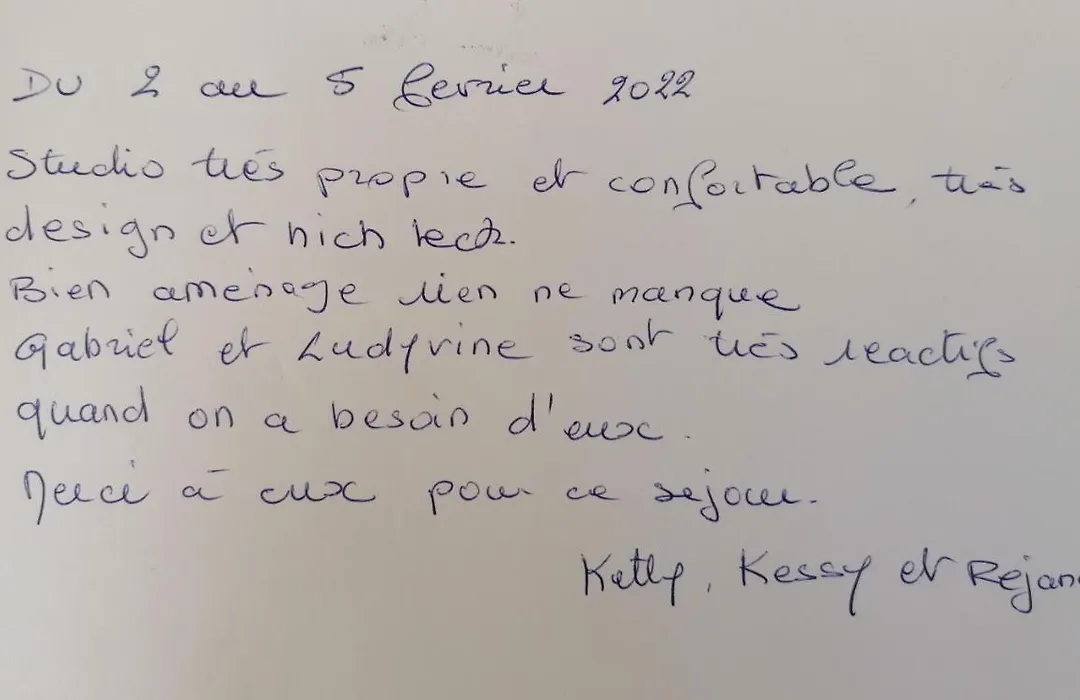 DU 2 au 5 fevrier 2022
Studio très propre et confortable, très
design et hich tech.
Bien aménage rien ne manque
Gabriel et Ludyvine sont très reactifs
quand on a besoin d'eux.
Merci à eux pour ce sejour.
Ketty, Kessy et Rejan